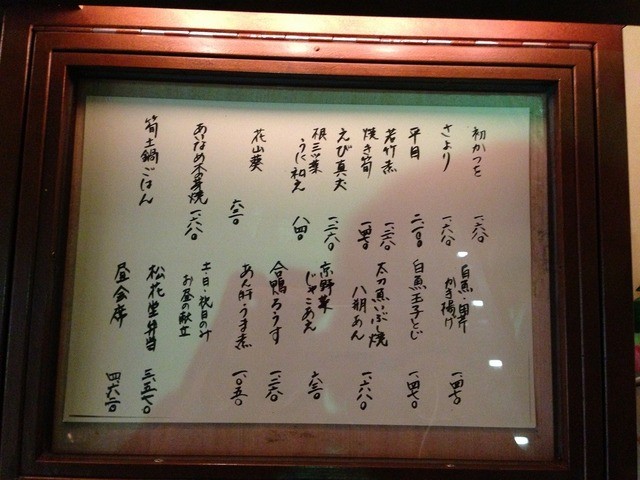 初かつを 一、六八〇
さより 一、六八〇
平目 二、一〇〇
若竹煮 一、二六〇
焼き筍 一、四七〇
えび真丈 一、二六〇
根三ツ葉
うに和え 八四〇
花山葵 六三〇
あいなめ木の芽焼 一、六八〇
筍土鍋ごはん
白魚・田芹
かき揚げ 一、四七〇
白魚玉子とじ 一、四七〇
太刀魚いぶし焼
八朔あん 一、六八〇
京野菜
じゃこあえ 六三〇
合鴨ろうす 一、二六〇
あん肝うま煮 一、〇五〇
土日・祝日のみ
お昼の献立
松花堂弁当 三、五七〇
昼会席 四、六二〇